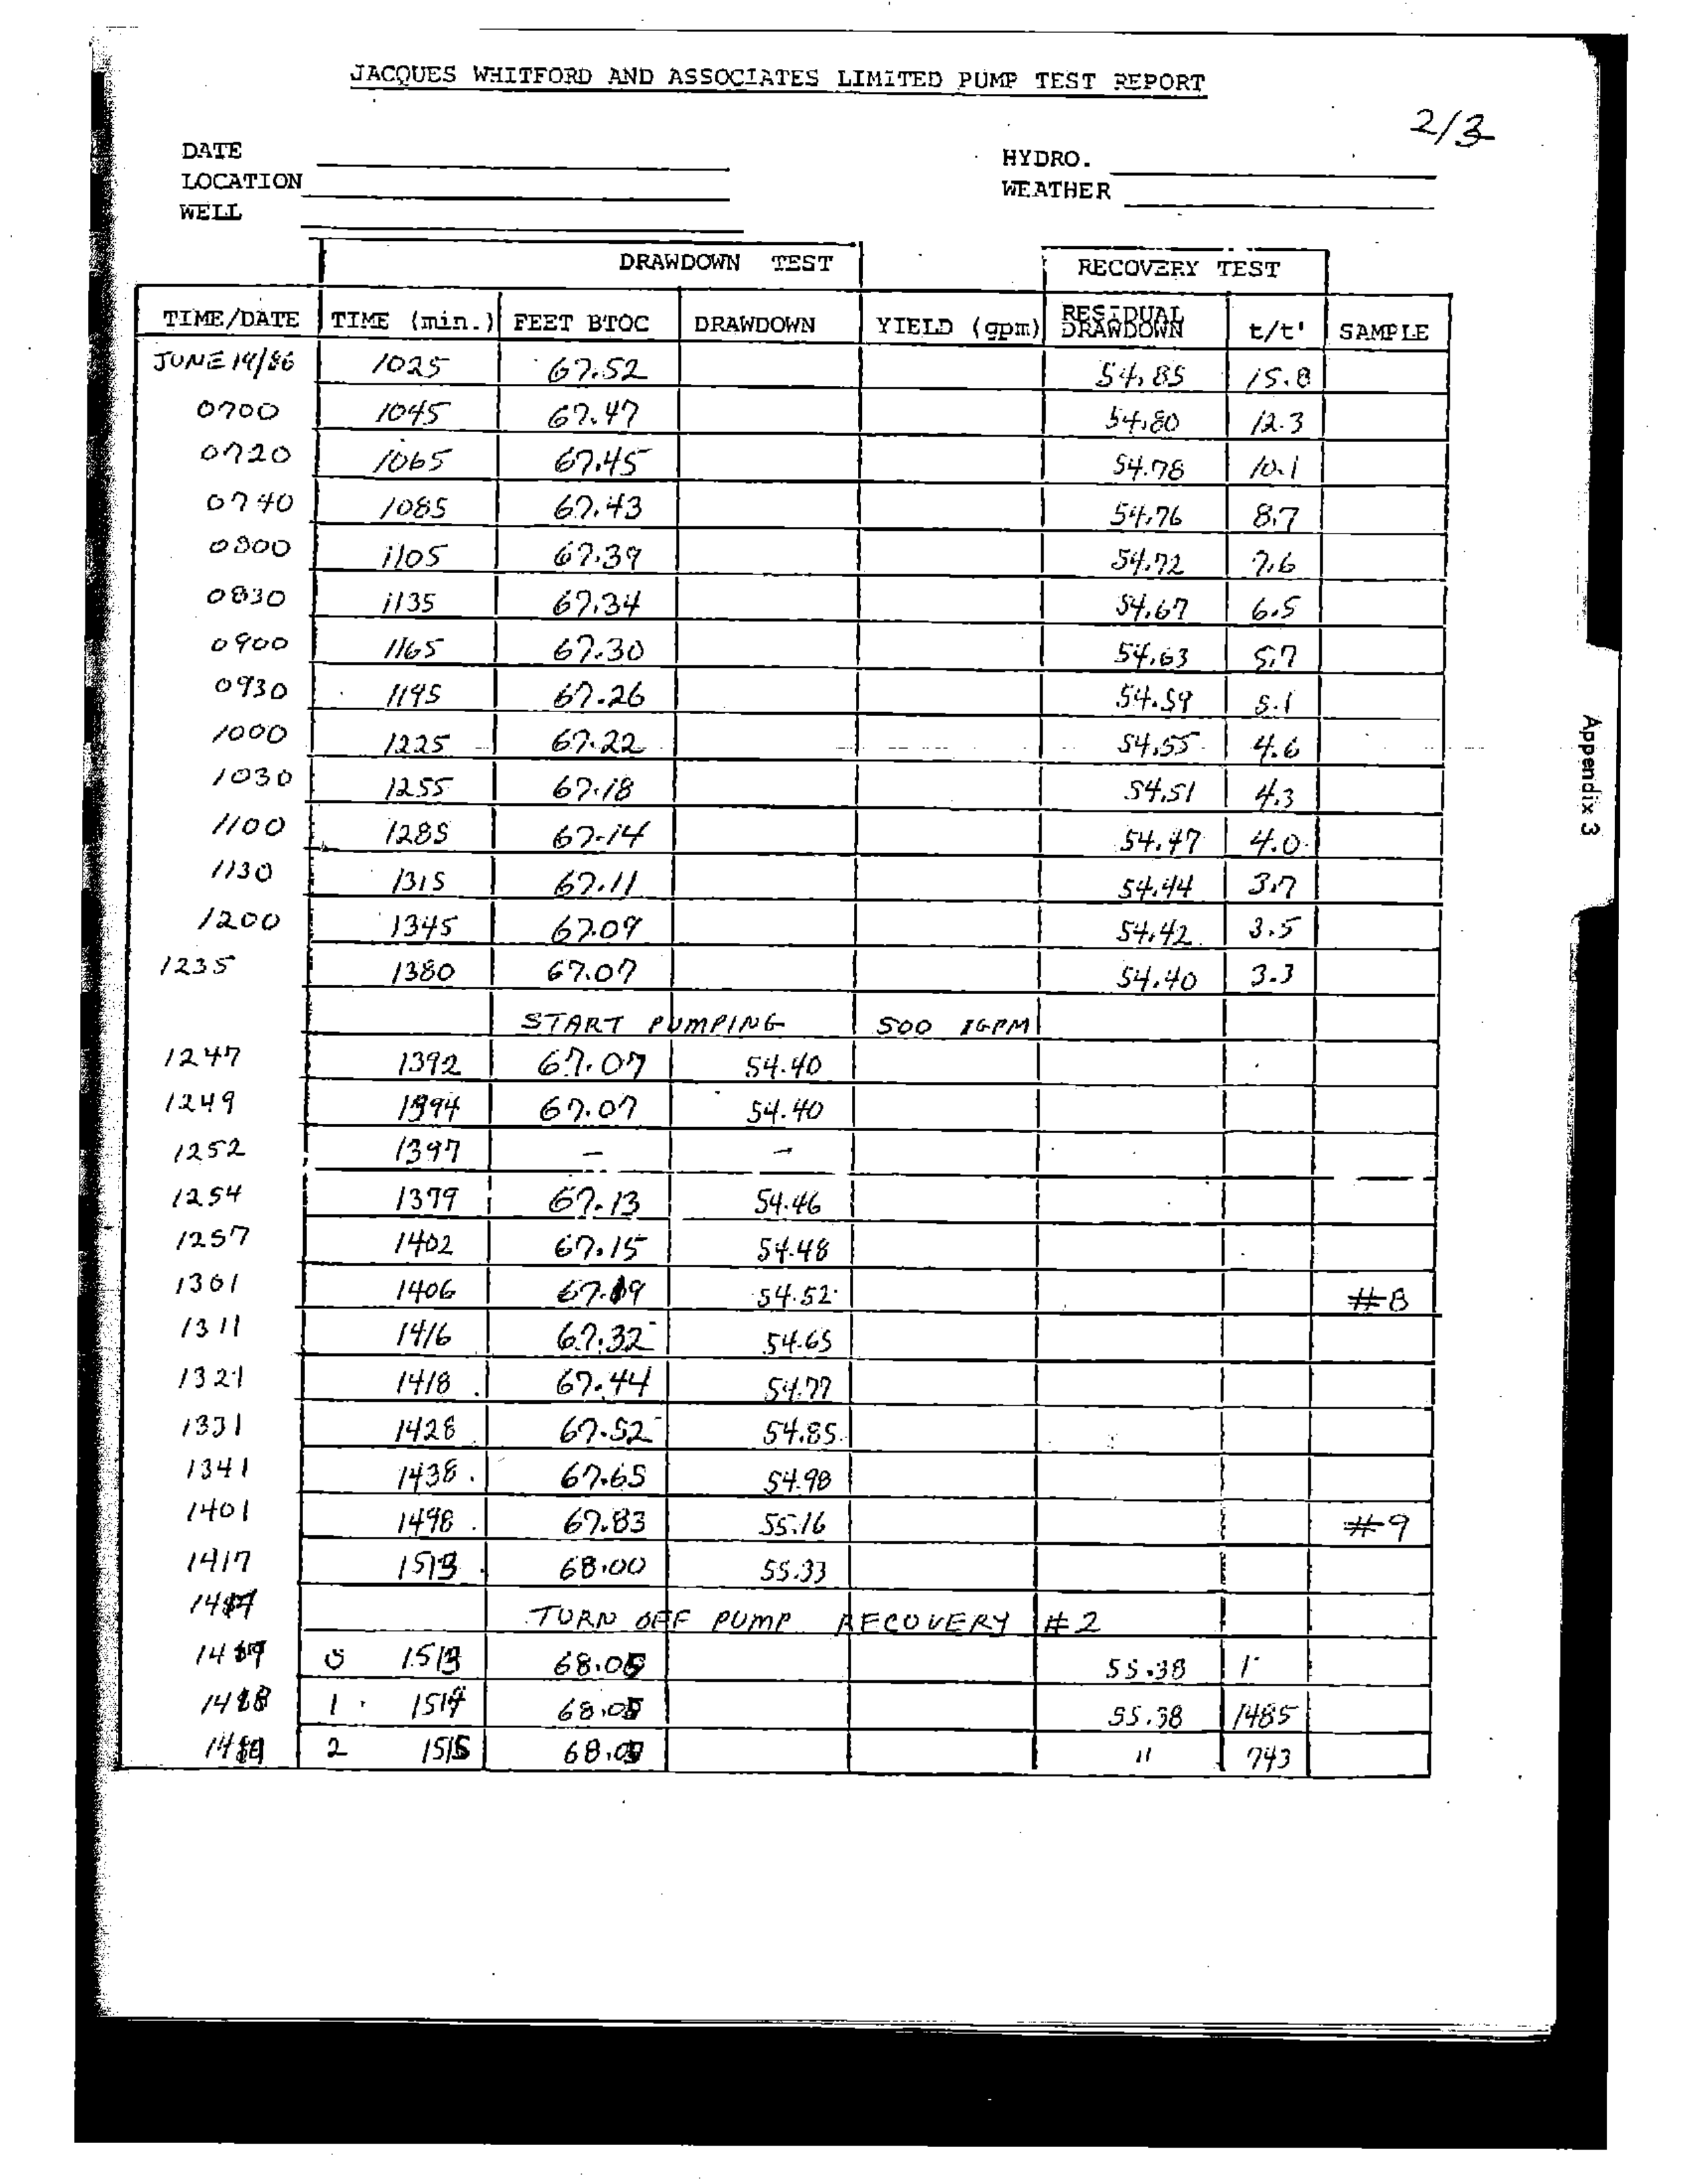 JACQUES WHITFORD AND ASSOCIATES LIMITED PUMP TEST REPORT
2/3
DATE
HYDRO.
LOCATION
WEATHER
WELL
DRAWDOWN TEST RECOVERY TEST
TIME/DATE TIME (min.) FEET BTOC DRAWDOWN YIELD (gpm) RESIDUAL DRAWDOWN t/t' SAMPLE
JUNE 14/86 1025 67.52 54.85 15.8
0700 1045 67.47 54.80 12.3
0720 1065 67.45 54.78 10.1
0740 1085 67.43 54.76 8.7
0800 1105 67.39 54.72 7.6
0830 1135 67.34 54.67 6.5
0900 1165 67.30 54.63 5.7
0930 1195 67.26 54.59 5.1
1000 1225 67.22 54.55 4.6
1030 1255 67.18 54.51 4.3
1100 1285 67.14 54.47 4.0
1130 1315 67.11 54.44 3.7
1200 1345 67.09 54.42 3.5
1235 1380 67.07 54.40 3.3
START PUMPING 500 IGPM
1247 1392 67.07 54.40
1249 1394 67.07 54.40
1252 1397 - -
1254 1379 67.13 54.46
1257 1402 67.15 54.48
1301 1406 67.19 54.52 #8
1311 1416 67.32 54.65
1321 1418 67.44 54.77
1331 1428 67.52 54.85
1341 1438 67.65 54.98
1401 1498 67.83 55.16 #9
1417 1513 68.00 55.33
TURN OFF PUMP RECOVERY #2
0 1513 68.05 55.38 1
1 1514 68.05 55.38 1485
2 1515 68.05 " 743
Appendix 3